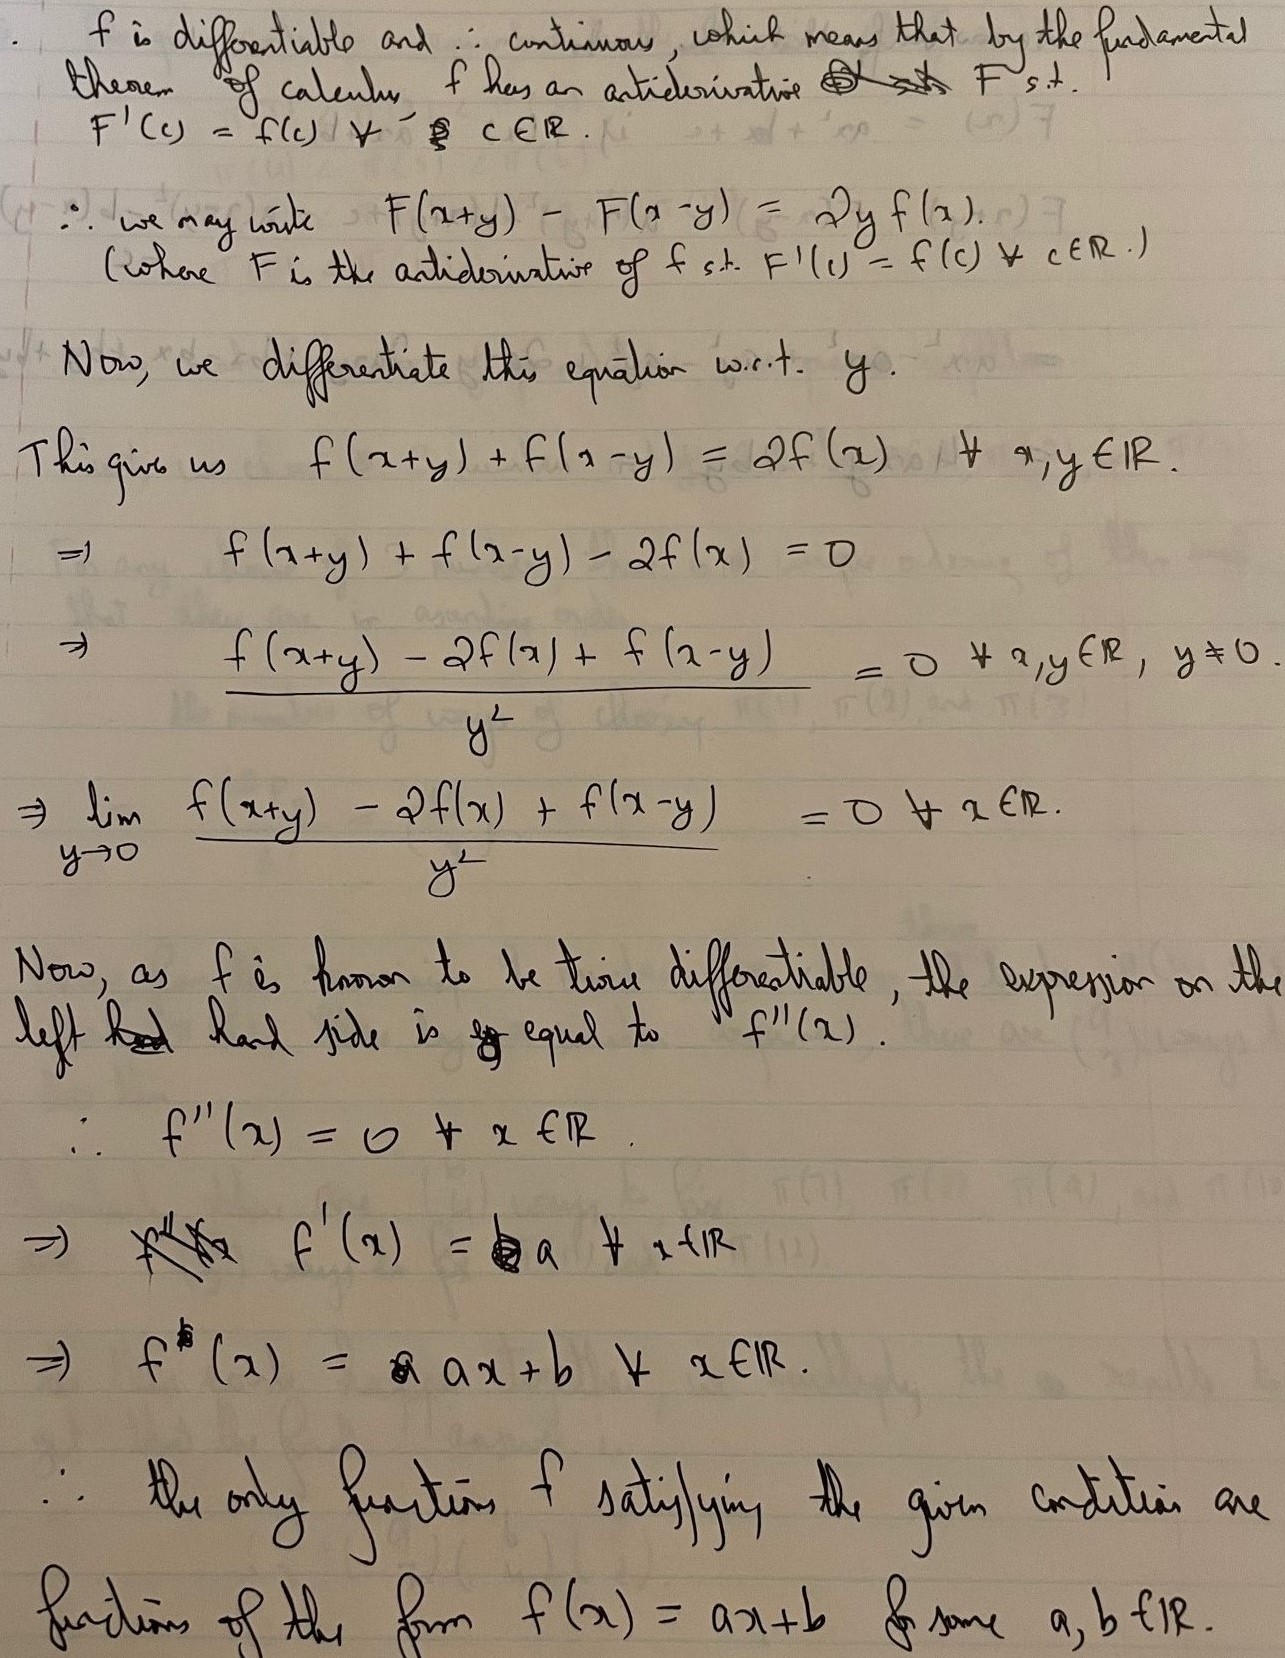 . f is differentiable and ∴ continuous, which means that by the fundamental
theorem of calculus f has an antiderivative F s.t.
F'(c) = f(c) ∀ c ∈ ℝ.
∴ we may write F(x+y) - F(x-y) = 2y f(x).
(where F is the antiderivative of f s.t. F'(c) = f(c) ∀ c ∈ ℝ.)
Now, we differentiate this equation w.r.t. y.
This gives us f(x+y) + f(x-y) = 2f(x) ∀ x,y ∈ ℝ.
⇒ f(x+y) + f(x-y) - 2f(x) = 0
⇒ f(x+y) - 2f(x) + f(x-y) = 0 ∀ x,y ∈ ℝ, y ≠ 0.
y²
⇒ lim f(x+y) - 2f(x) + f(x-y) = 0 ∀ x ∈ ℝ.
y→0 y²
Now, as f is known to be twice differentiable, the expression on the
left hand side is equal to f''(x).
∴ f''(x) = 0 ∀ x ∈ ℝ.
⇒ f'(x) = a ∀ x ∈ ℝ
⇒ f(x) = ax+b ∀ x ∈ ℝ.
∴ the only functions f satisfying the given condition are
functions of the form f(x) = ax+b for some a, b ∈ ℝ.